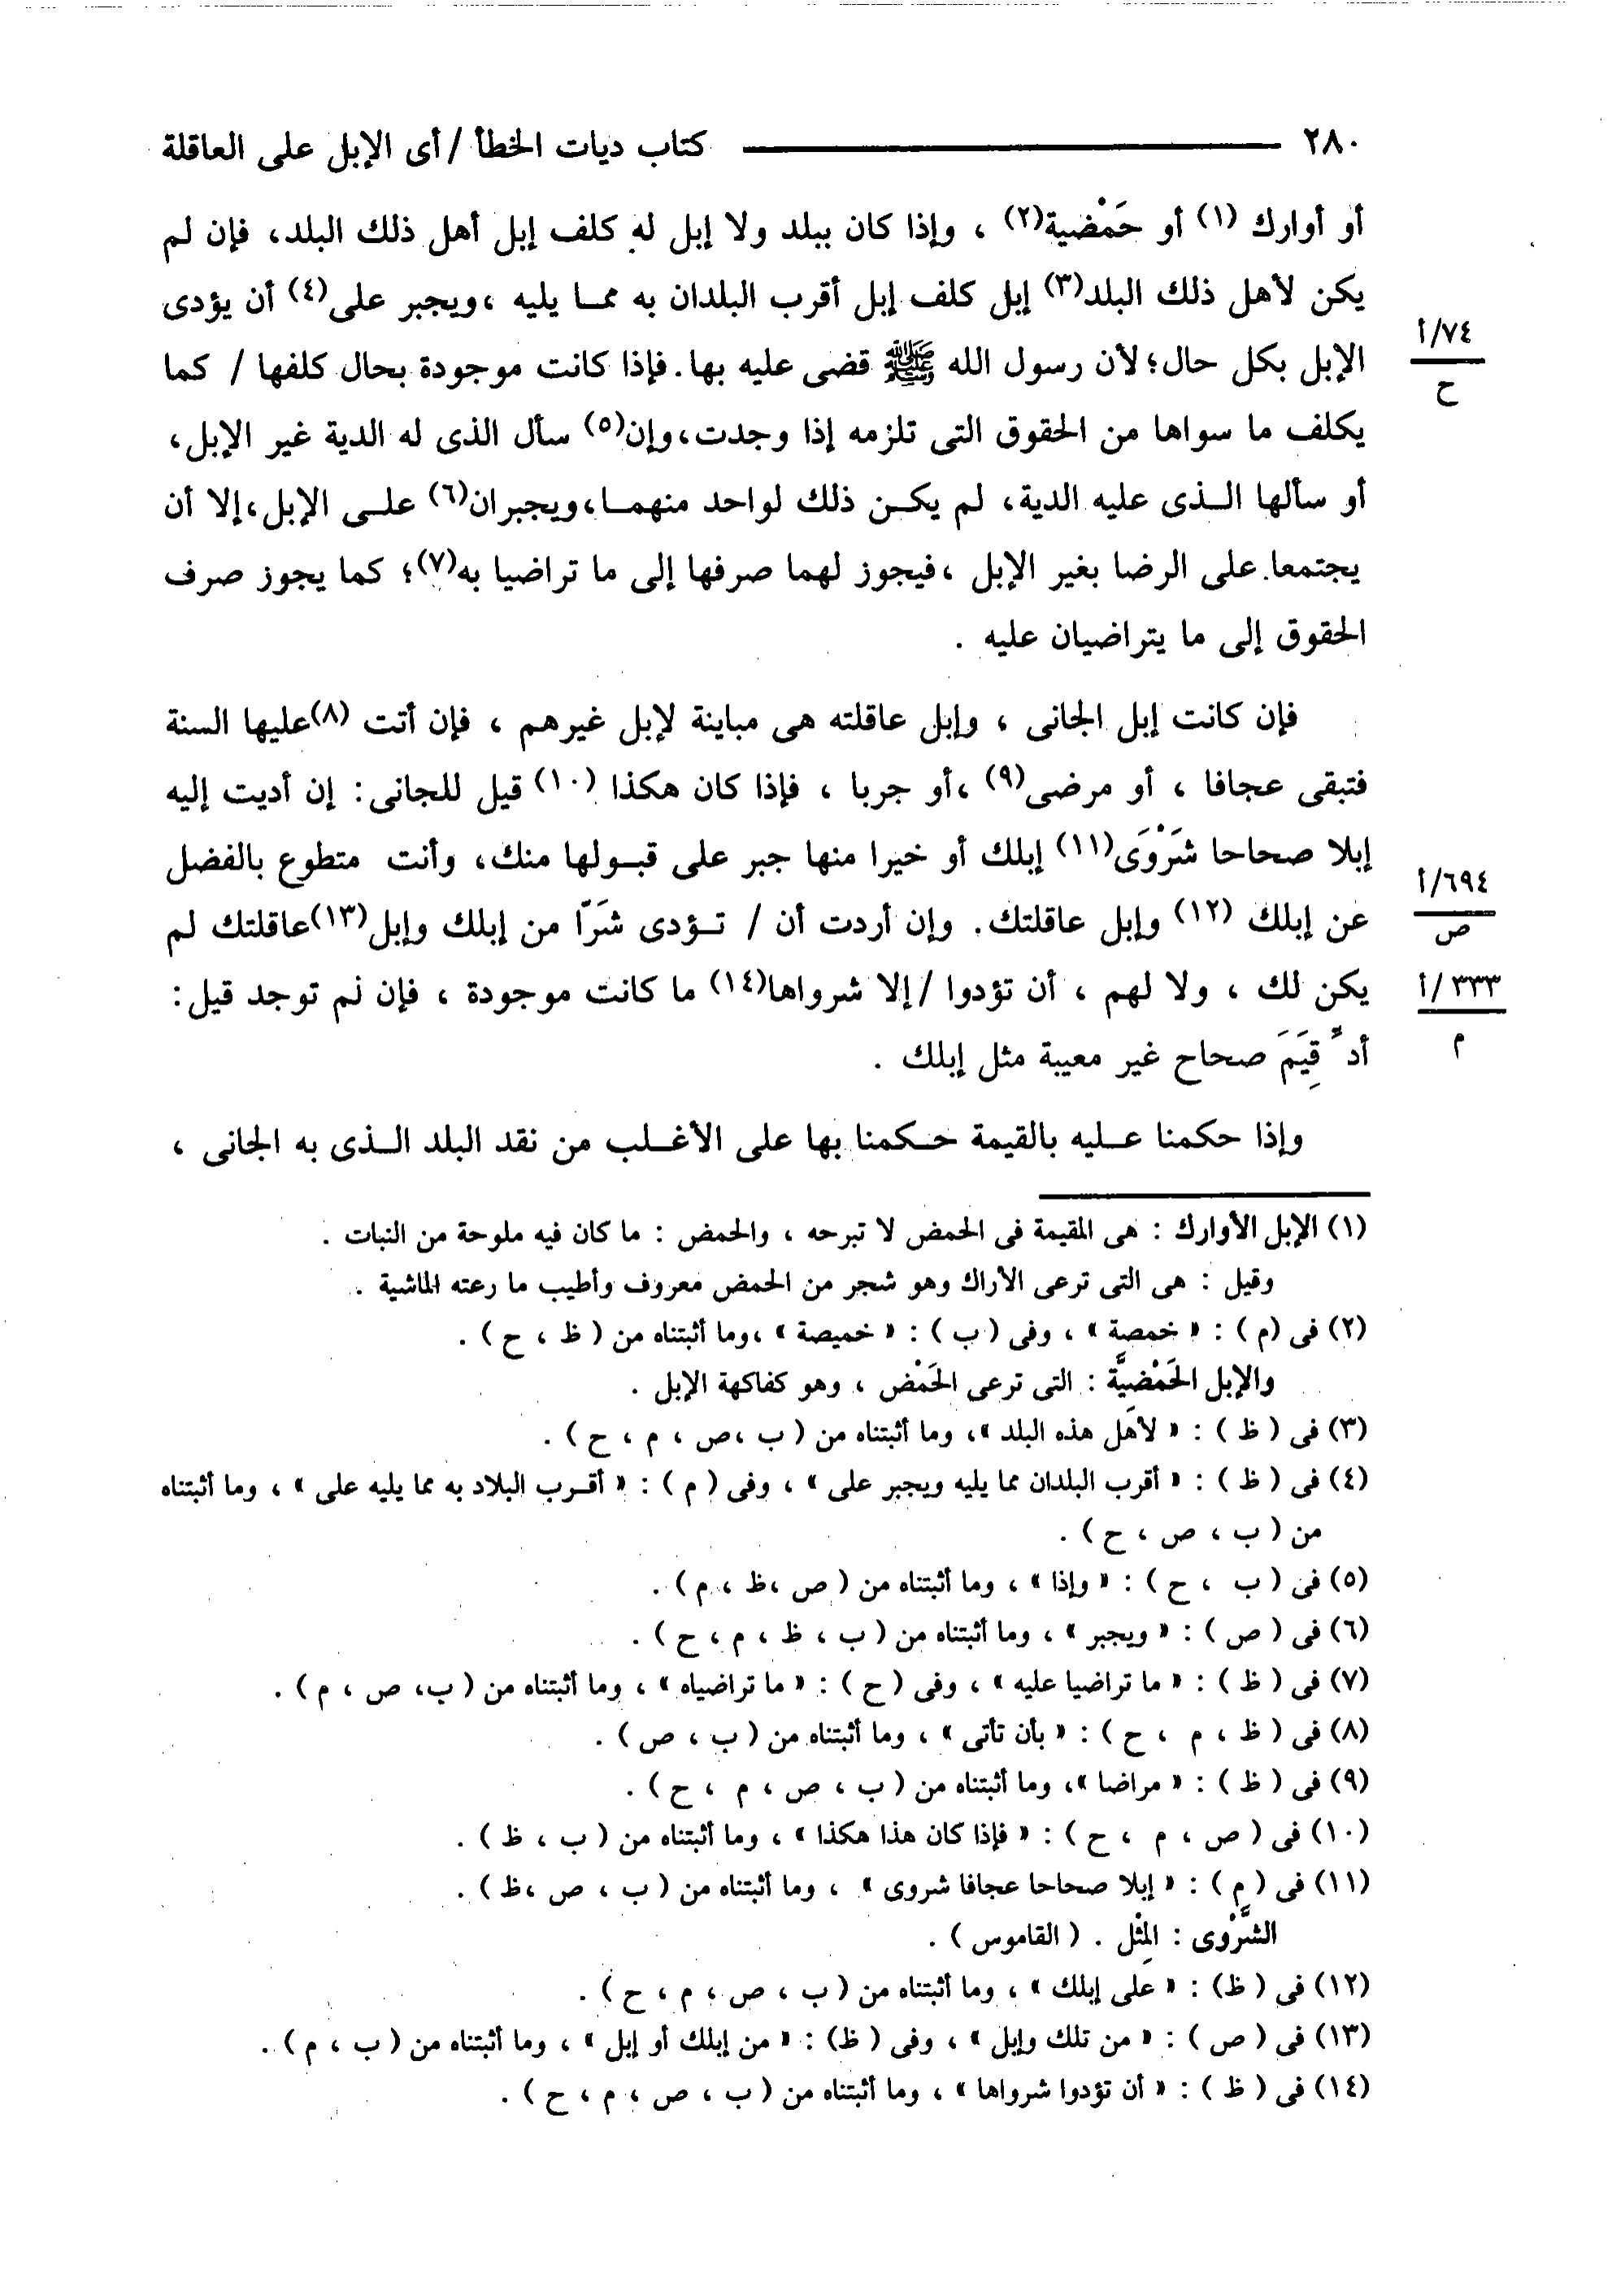 ٢٨٠ كتاب ديات الخطأ / أى الإبل على العاقلة
أو أوارك (١) أو حَمْضية(٢) ، وإذا كان ببلد ولا إبل له كلف إبل أهل ذلك البلد، فإن لم
يكن لأهل ذلك البلد(٣) إبل كلف إبل أقرب البلدان به مما يليه ،ويجبر على(٤) أن يؤدى
الإبل بكل حال؛ لأن رسول الله ﷺ قضى عليه بها. فإذا كانت موجودة بحال كلفها / كما
٧٤/أ
ح
يكلف ما سواها من الحقوق التى تلزمه إذا وجدت،وإن(٥) سأل الذى له الدية غير الإبل،
أو سألها الـذى عليه الدية، لم يكـن ذلك لواحد منهمـا،ويجبران(٦) علـى الإبل،إلا أن
يجتمعا على الرضا بغير الإبل ،فيجوز لهما صرفها إلى ما تراضيا به(٧)؛ كما يجوز صرف
الحقوق إلى ما يتراضيان عليه .
فإن كانت إبل الجانى ، وإبل عاقلته هى مباينة لإبل غيرهم ، فإن أتت (٨)عليها السنة
فتبقى عجافا ، أو مرضى(٩) ،أو جربا ، فإذا كان هكذا (١٠) قيل للجانى: إن أديت إليه
إبلا صحاحا شَرْوَى(١١) إبلك أو خيرا منها جبر على قبـولها منك، وأنت متطوع بالفضل
عن إبلك (١٢) وإبل عاقلتك. وإن أردت أن / تـؤدى شَرّا من إبلك وإبل(١٣)عاقلتك لم
٦٩٤/أ
ص
يكن لك ، ولا لهم ، أن تؤدوا /إلا شرواها(١٤) ما كانت موجودة ، فإن لم توجد قيل:
٣٣٣/أ
م
أد ِّ قِيَمَ صحاح غير معيبة مثل إبلك .
وإذا حكمنا عـليه بالقيمة حـكمنا بها على الأغـلب من نقد البلد الـذى به الجانى ،
(١) الإبل الأوارك : هى المقيمة فى الحمض لا تبرحه ، والحمض : ما كان فيه ملوحة من النبات .
وقيل : هى التى ترعى الأراك وهو شجر من الحمض معروف وأطيب ما رعته الماشية .
(٢) فى (م) : « خمصة » ، وفى ( ب ) : « خميصة » ،وما أثبتناه من ( ظ ، ح ) .
والإبل الحَمْضيَّة : التى ترعى الحَمْض ، وهو كفاكهة الإبل .
(٣) فى ( ظ ) : « لأهل هذه البلد »، وما أثبتناه من ( ب ،ص ، م ، ح ) .
(٤) فى ( ظ ) : « أقرب البلدان مما يليه ويجبر على » ، وفى ( م ) : « أقـرب البلاد به مما يليه على » ، وما أثبتناه
من ( ب ، ص ، ح ) .
(٥) فى ( ب ، ح ) : « وإذا » ، وما أثبتناه من ( ص ،ظ ، م ) .
(٦) فى ( ص ) : « ويجبر » ، وما أثبتناه من ( ب ، ظ ، م ، ح ) .
(٧) فى ( ظ ) : « ما تراضيا عليه » ، وفى ( ح ) : « ما تراضياه » ، وما أثبتناه من ( ب، ص ، م ) .
(٨) فى ( ظ ، م ، ح ) : « بأن تأتى » ، وما أثبتناه من ( ب ، ص ) .
(٩) فى ( ظ ) : « مراضا »، وما أثبتناه من ( ب ، ص ، م ، ح ) .
(١٠) فى ( ص ، م ، ح ) : « فإذا كان هذا هكذا » ، وما أثبتناه من ( ب ، ظ ) .
(١١) فى ( م ) : « إبلا صحاحا عجافا شروى » ، وما أثبتناه من ( ب ، ص ،ظ ) .
الشَّرْوى : المِثْل . ( القاموس ) .
(١٢) فى ( ظ) : « على إبلك » ، وما أثبتناه من ( ب ، ص ، م ، ح ) .
(١٣) فى ( ص ) : « من تلك وإبل » ، وفى ( ظ) : « من إبلك أو إبل » ، وما أثبتناه من ( ب ، م ) .
(١٤) فى ( ظ ) : « أن تؤدوا شرواها » ، وما أثبتناه من ( ب ، ص ، م ، ح ) .